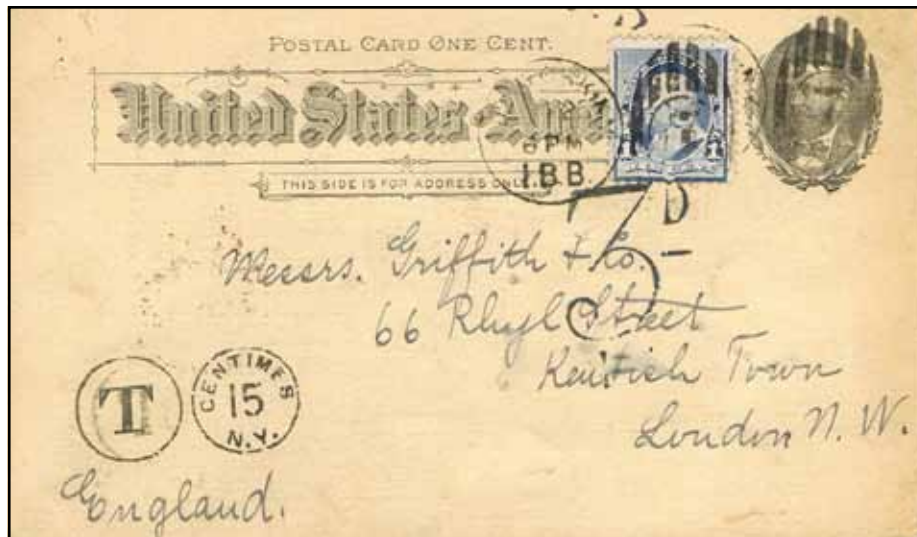 POSTAL CARD ONE CENT.
United States
THIS SIDE IS FOR ADDRESS ONLY.
6 PM
1BB
1 1
3 D
Messrs. Griffith & Co.
66 Rhyl Street
Kentish Town
London N. W.
T
CENTIMES
15
N.Y.
England.